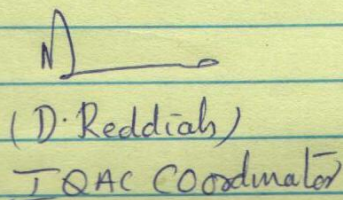 (D. Reddiah)
IQAC Coordinator